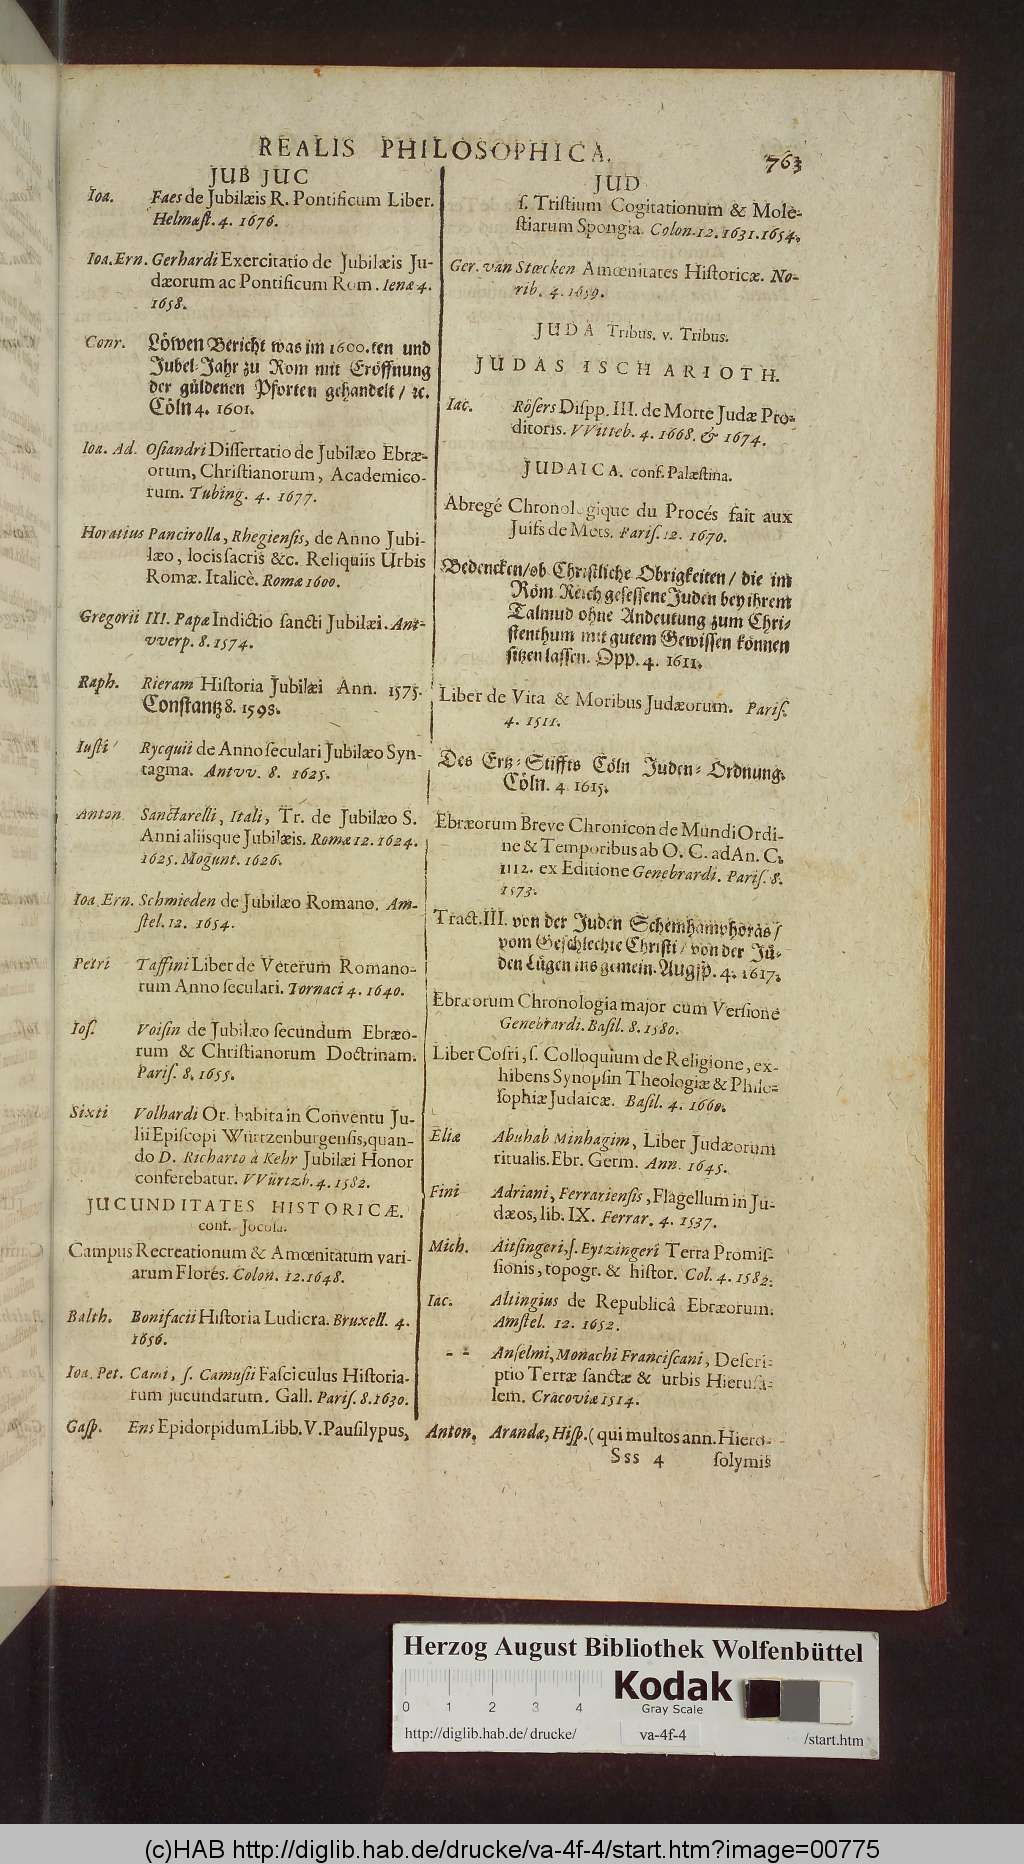 REALIS PHILOSOPHICA.
763
JUB JUC
Ioa. Faes de Jubilæis R. Pontificum Liber.
Helmæſt. 4. 1676.
Ioa. Ern. Gerhardi Exercitatio de Jubilæis Ju-
dæorum ac Pontificum Rom. Ienæ 4.
1658.
Conr. Löwen Bericht was im 1600.ten und
Jubel-Jahr zu Rom mit Eröffnung
der güldenen Pforten gehandelt / ꝛc.
Cöln 4. 1601.
Ioa. Ad. Oſiandri Diſſertatio de Jubilæo Ebræ-
orum, Chriſtianorum, Academico-
rum. Tubing. 4. 1677.
Horatius Pancirolla, Rhegienſis, de Anno Jubi-
læo, locis ſacris &c. Reliquiis Urbis
Romæ. Italicè. Romæ 1600.
Gregorii III. Papæ Indictio ſancti Jubilæi. Ant-
vverp. 8. 1574.
Raph. Rieram Hiſtoria Jubilæi Ann. 1575.
Conſtantz 8. 1598.
Iuſti Rycquii de Anno ſeculari Jubilæo Syn-
tagma. Antvv. 8. 1625.
Anton. Sanctarelli, Itali, Tr. de Jubilæo S.
Anni aliisque Jubilæis. Romæ 12. 1624.
1625. Mogunt. 1626.
Ioa. Ern. Schmieden de Jubilæo Romano. Am-
ſtel. 12. 1654.
Petri Taffini Liber de Veterum Romano-
rum Anno ſeculari. Tornaci 4. 1640.
Ioſ. Voiſin de Jubilæo ſecundum Ebræo-
rum & Chriſtianorum Doctrinam.
Pariſ. 8. 1655.
Sixti Volhardi Or. habita in Conventu Ju-
lii Epiſcopi Würtzenburgenſis, quan-
do D. Richarto à Kehr Jubilæi Honor
conferebatur. VVürtzb. 4. 1582.
JUCUNDITATES HISTORICÆ.
conf. Jocoſa.
Campus Recreationum & Amœnitatum vari-
arum Flores. Colon. 12. 1648.
Balth. Bonifacii Hiſtoria Ludicra. Bruxell. 4.
1656.
Ioa. Pet. Cami, ſ. Camuſii Faſciculus Hiſtoria-
rum jucundarum. Gall. Pariſ. 8. 1630.
Gaſp. Ens Epidorpidum Libb. V. Pauſilypus,
JUD
ſ. Triſtium Cogitationum & Mole-
ſtiarum Spongia. Colon. 12. 1631. 1654.
Ger. van Stœcken Amœnitates Hiſtoricæ. No-
rib. 4. 1659.
JUDA Tribus. v. Tribus.
JUDAS ISCHARIOTH.
Iac. Röſers Diſpp. III. de Morte Judæ Pro-
ditoris. VVitteb. 4. 1668. & 1674.
JUDAICA. conf. Palæſtina.
Abregé Chronologique du Procés fait aux
Juifs de Mets. Pariſ. 12. 1670.
Bedencken / ob Chriſtliche Obrigkeiten / die im
Röm. Reich geſeſſene Juden bey ihrem
Talmud ohne Andeutung zum Chri-
ſtenthum mit gutem Gewiſſen können
ſitzen laſſen. Opp. 4. 1611.
Liber de Vita & Moribus Judæorum. Pariſ.
4. 1511.
Des Ertz-Stiffts Cöln Juden-Ordnung.
Cöln. 4. 1615.
Ebræorum Breve Chronicon de Mundi Ordi-
ne & Temporibus ab O. C. ad An. C.
1112. ex Editione Genebrardi. Pariſ. 8.
1573.
Tract. III. von der Juden Schemhamphoras /
vom Geſchlechte Chriſti / von der Jü-
den Lügen ins gemein. Augſp. 4. 1617.
Ebræorum Chronologia major cum Verſione
Genebrardi. Baſil. 8. 1580.
Liber Coſri, ſ. Colloquium de Religione, ex-
hibens Synopſin Theologiæ & Philo-
ſophiæ Judaicæ. Baſil. 4. 1660.
Eliæ Abuhab Minhagim, Liber Judæorum
ritualis. Ebr. Germ. Ann. 1645.
Fini Adriani, Ferrarienſis, Flagellum in Ju-
dæos, lib. IX. Ferrar. 4. 1537.
Mich. Aitſingeri, ſ. Eytzingeri Terra Promiſ-
ſionis, topogr. & hiſtor. Col. 4. 1582.
Iac. Altingius de Republicâ Ebræorum.
Amſtel. 12. 1652.
- - Anſelmi, Monachi Franciſcani, Deſcri-
ptio Terræ ſanctæ & urbis Hieruſa-
lem. Cracoviæ 1514.
Anton. Arandæ, Hiſp. (qui multos ann. Hiero-
Sss 4 ſolymis
Herzog August Bibliothek Wolfenbüttel
0 1 2 3 4
Kodak
Gray Scale
http://diglib.hab.de/drucke/ va-4f-4 /start.htm
(c)HAB http://diglib.hab.de/drucke/va-4f-4/start.htm?image=00775